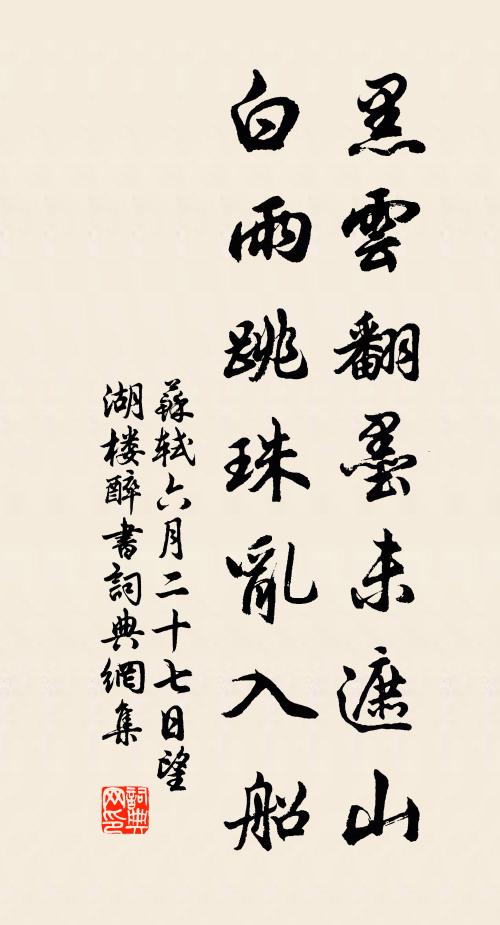 黑雲翻墨未遮山
白雨跳珠亂入船
蘇軾六月二十七日望
湖楼醉書詞典網集
詞典网印